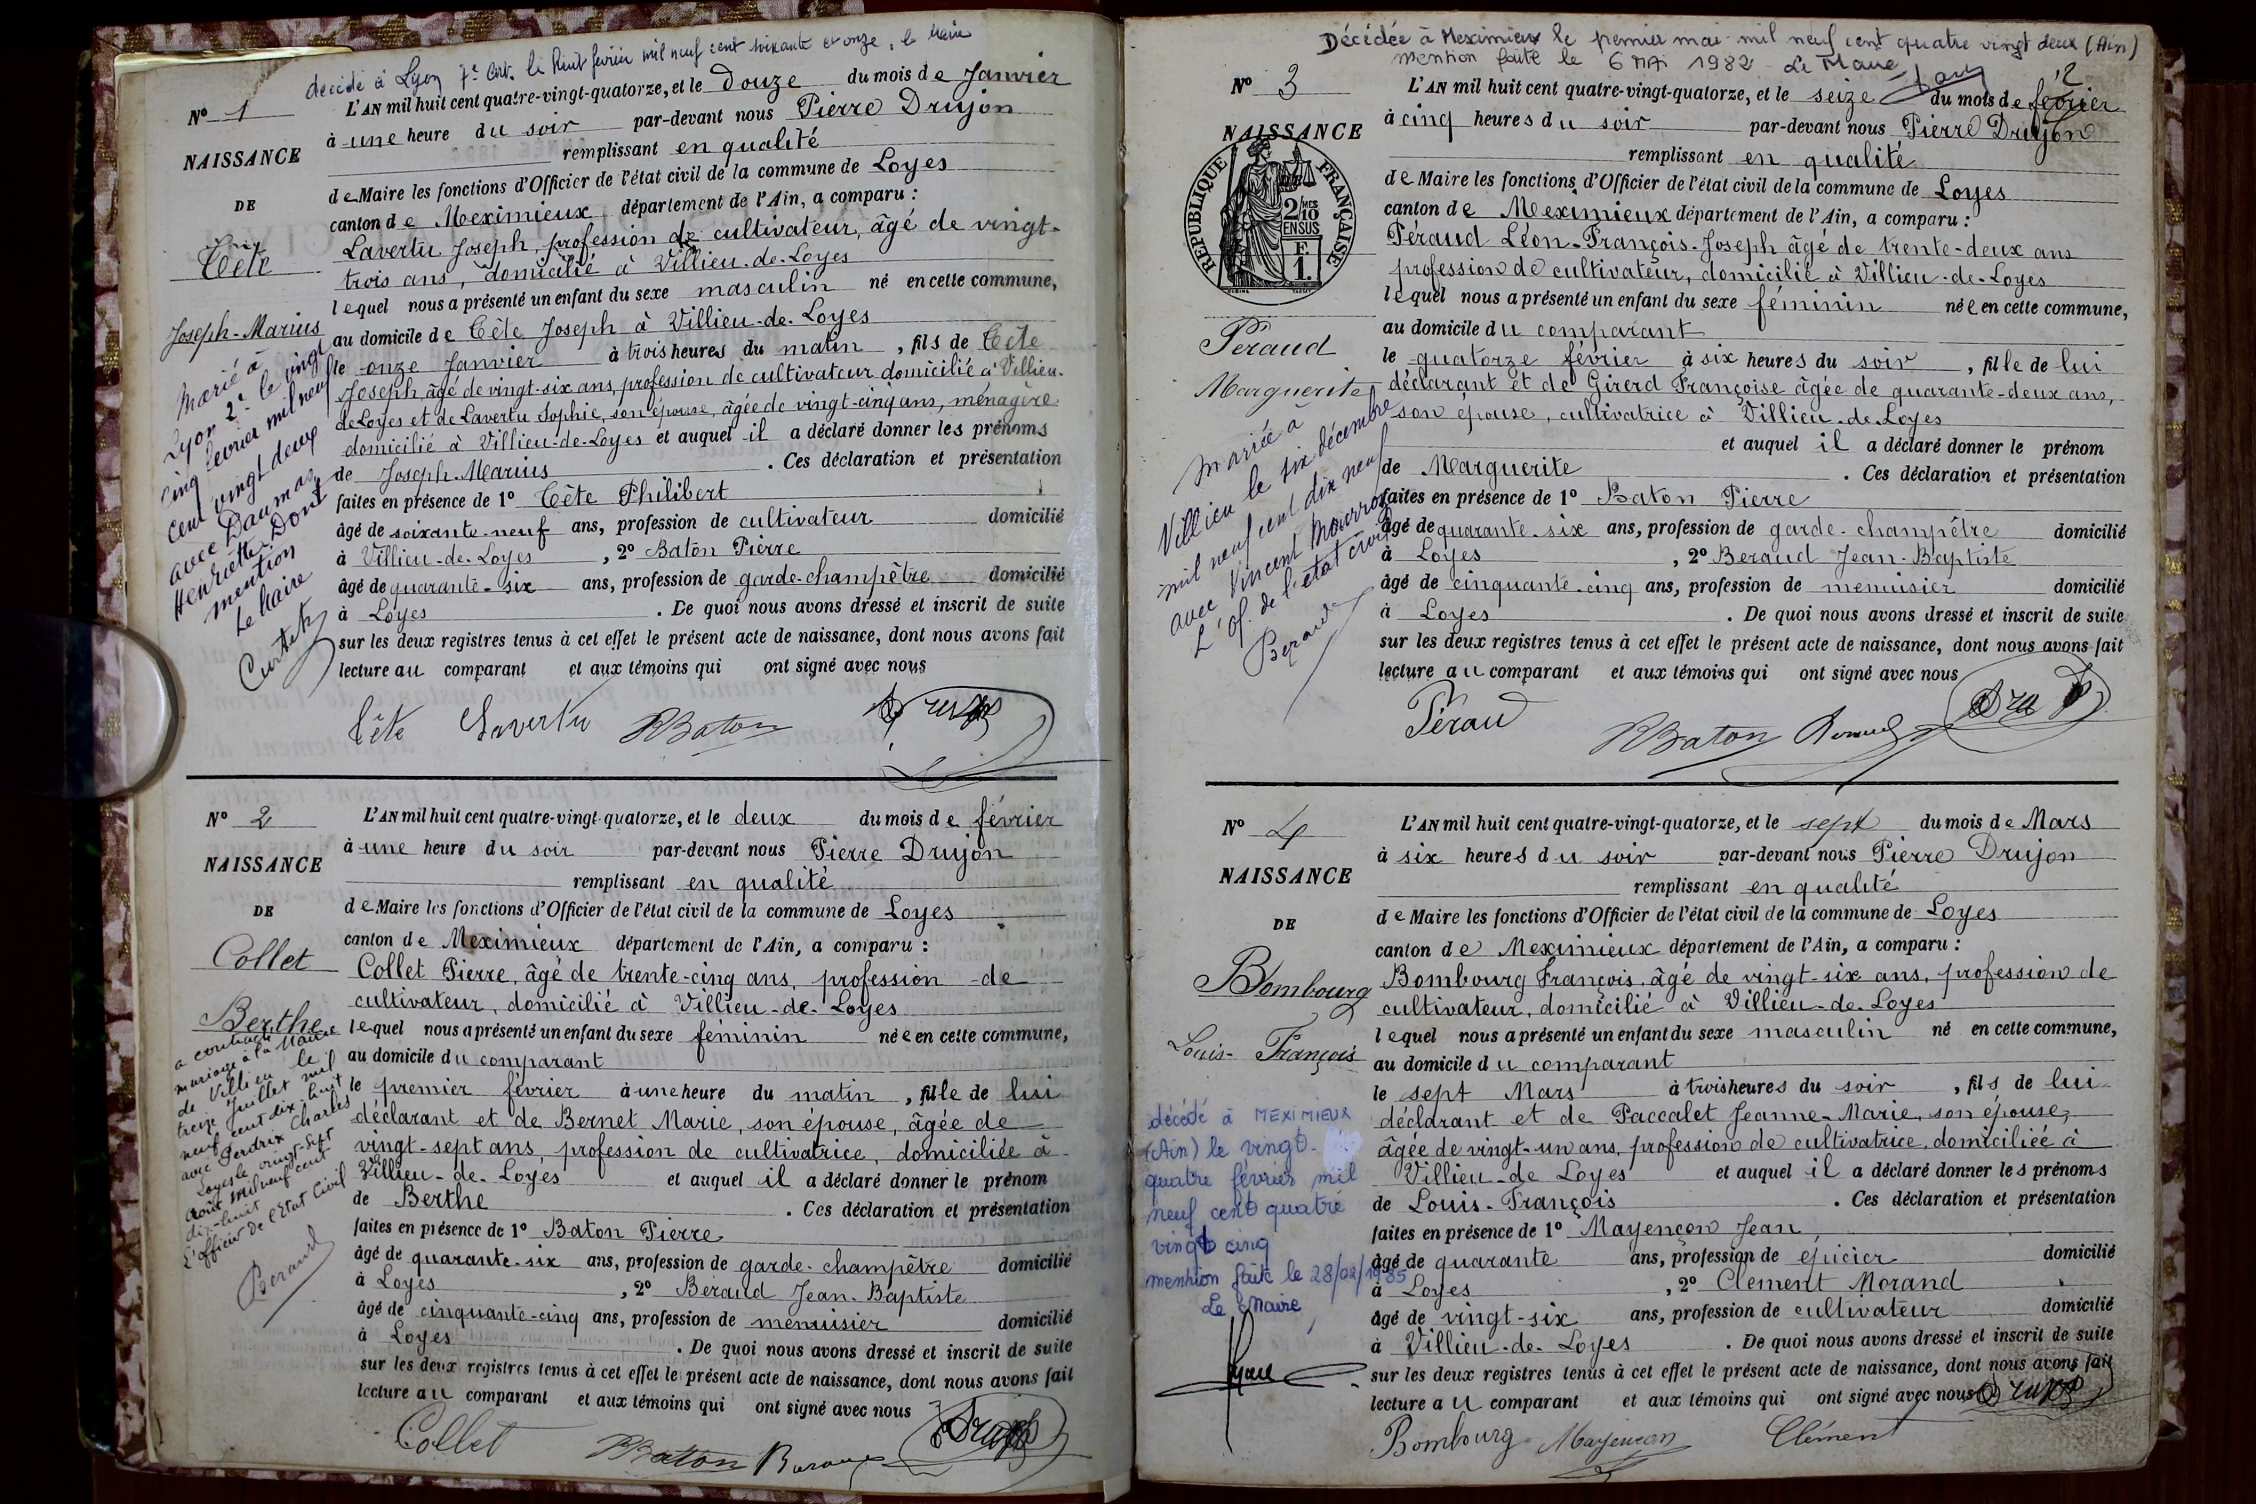 décédé à Lyon 7e Arrt. le huit février mil neuf cent soixante et onze, le Maire
No 1
NAISSANCE
DE
Tête
Joseph-Marius
Marié à
Lyon 2e le vingt
cinq février mil neuf
cent vingt deux
avec Daumas
Henriette Dont
mention
Le Maire
L'AN mil huit cent quatre-vingt-quatorze, et le douze du mois de Janvier
à une heure du soir par-devant nous Pierre Drujon
remplissant en qualité
de Maire les fonctions d'Officier de l'état civil de la commune de Loyes
canton de Meximieux département de l'Ain, a comparu :
Lavertu Joseph, profession de cultivateur, âgé de vingt-
trois ans, domicilié à Villieu-de-Loyes
lequel nous a présenté un enfant du sexe masculin né en cette commune,
au domicile de Tête Joseph à Villieu-de-Loyes
le onze Janvier à trois heures du matin, fils de Tête
Joseph âgé de vingt-six ans, profession de cultivateur domicilié à Villieu-
de-Loyes et de Lavertu Sophie, son épouse, âgée de vingt-cinq ans, ménagère
domicilié à Villieu-de-Loyes et auquel il a déclaré donner les prénoms
de Joseph-Marius . Ces déclaration et présentation
faites en présence de 1o Tête Philibert
âgé de soixante-neuf ans, profession de cultivateur domicilié
à Villieu-de-Loyes , 2o Baton Pierre
âgé de quarante-six ans, profession de garde-champêtre domicilié
à Loyes . De quoi nous avons dressé et inscrit de suite
sur les deux registres tenus à cet effet le présent acte de naissance, dont nous avons fait
lecture au comparant et aux témoins qui ont signé avec nous
Tête Lavertu PBaton
No 2
NAISSANCE
DE
Collet
Berthe
a contracté
mariage à la Mairie
de Villieu le
treize Juillet mil
neuf cent dix huit
avec Perdrix Charles
Loyes le vingt-sept
Août mil neuf cent
dix-huit
L'officier de l'Etat Civil
Beraud
L'AN mil huit cent quatre-vingt-quatorze, et le deux du mois de février
à une heure du soir par-devant nous Pierre Drujon
remplissant en qualité
de Maire les fonctions d'Officier de l'état civil de la commune de Loyes
canton de Meximieux département de l'Ain, a comparu :
Collet Pierre, âgé de trente-cinq ans, profession de
cultivateur, domicilié à Villieu-de-Loyes
lequel nous a présenté un enfant du sexe féminin née en cette commune,
au domicile du comparant
le premier février à une heure du matin, fille de lui
déclarant et de Bernet Marie, son épouse, âgée de
vingt-sept ans, profession de cultivatrice, domiciliée à
Villieu-de-Loyes et auquel il a déclaré donner le prénom
de Berthe . Ces déclaration et présentation
faites en présence de 1o Baton Pierre
âgé de quarante-six ans, profession de garde-champêtre domicilié
à Loyes , 2o Béraud Jean-Baptiste
âgé de cinquante-cinq ans, profession de menuisier domicilié
à Loyes . De quoi nous avons dressé et inscrit de suite
sur les deux registres tenus à cet effet le présent acte de naissance, dont nous avons fait
lecture au comparant et aux témoins qui ont signé avec nous
Collet PBaton
Décédée à Meximieux le premier mai mil neuf cent quatre vingt deux (Ain)
mention faite le 6 MAI 1982 Le Maire
No 3
NAISSANCE
RÉPUBLIQUE FRANÇAISE
2 MES
10
EN SUS
F.
1.
Péraud
Marguerite
mariée à
Villieu le six décembre
mil neuf cent dix neuf
avec Vincent
L'of. de l'état civil
Beraud
L'AN mil huit cent quatre-vingt-quatorze, et le seize du mois de février
à cinq heures du soir par-devant nous Pierre Drujon
remplissant en qualité
de Maire les fonctions d'Officier de l'état civil de la commune de Loyes
canton de Meximieux département de l'Ain, a comparu :
Péraud Léon-François-Joseph âgé de trente-deux ans
profession de cultivateur, domicilié à Villieu-de-Loyes
lequel nous a présenté un enfant du sexe féminin née en cette commune,
au domicile du comparant
le quatorze février à six heures du soir, fille de lui
déclarant et de Girerd Françoise âgée de quarante-deux ans,
son épouse, cultivatrice à Villieu-de-Loyes
et auquel il a déclaré donner le prénom
de Marguerite . Ces déclaration et présentation
faites en présence de 1o Baton Pierre
âgé de quarante-six ans, profession de garde-champêtre domicilié
à Loyes , 2o Beraud Jean-Baptiste
âgé de cinquante-cinq ans, profession de menuisier domicilié
à Loyes . De quoi nous avons dressé et inscrit de suite
sur les deux registres tenus à cet effet le présent acte de naissance, dont nous avons fait
lecture au comparant et aux témoins qui ont signé avec nous
Pérau PBaton
No 4
NAISSANCE
DE
Bombourg
Louis-François
décédé à MEXIMIEUX
(Ain) le vingt-
quatre février mil
neuf cent quatre
vingt cinq
mention faite le 28/02/1985
Le Maire
L'AN mil huit cent quatre-vingt-quatorze, et le sept du mois de Mars
à six heures du soir par-devant nous Pierre Drujon
remplissant en qualité
de Maire les fonctions d'Officier de l'état civil de la commune de Loyes
canton de Meximieux département de l'Ain, a comparu :
Bombourg François, âgé de vingt-six ans, profession de
cultivateur, domicilié à Villieu-de-Loyes
lequel nous a présenté un enfant du sexe masculin né en cette commune,
au domicile du comparant
le sept Mars à trois heures du soir, fils de lui
déclarant et de Paccalet Jeanne-Marie, son épouse,
âgée de vingt-un ans, profession de cultivatrice, domiciliée à
Villieu-de Loyes et auquel il a déclaré donner les prénoms
de Louis-François . Ces déclaration et présentation
faites en présence de 1o Mayençon Jean
âgé de quarante ans, profession de épicier domicilié
à Loyes , 2o Clément Morand
âgé de vingt-six ans, profession de cultivateur domicilié
à Villieu-de-Loyes . De quoi nous avons dressé et inscrit de suite
sur les deux registres tenus à cet effet le présent acte de naissance, dont nous avons fait
lecture au comparant et aux témoins qui ont signé avec nous
Bombourg Mayençon Clément